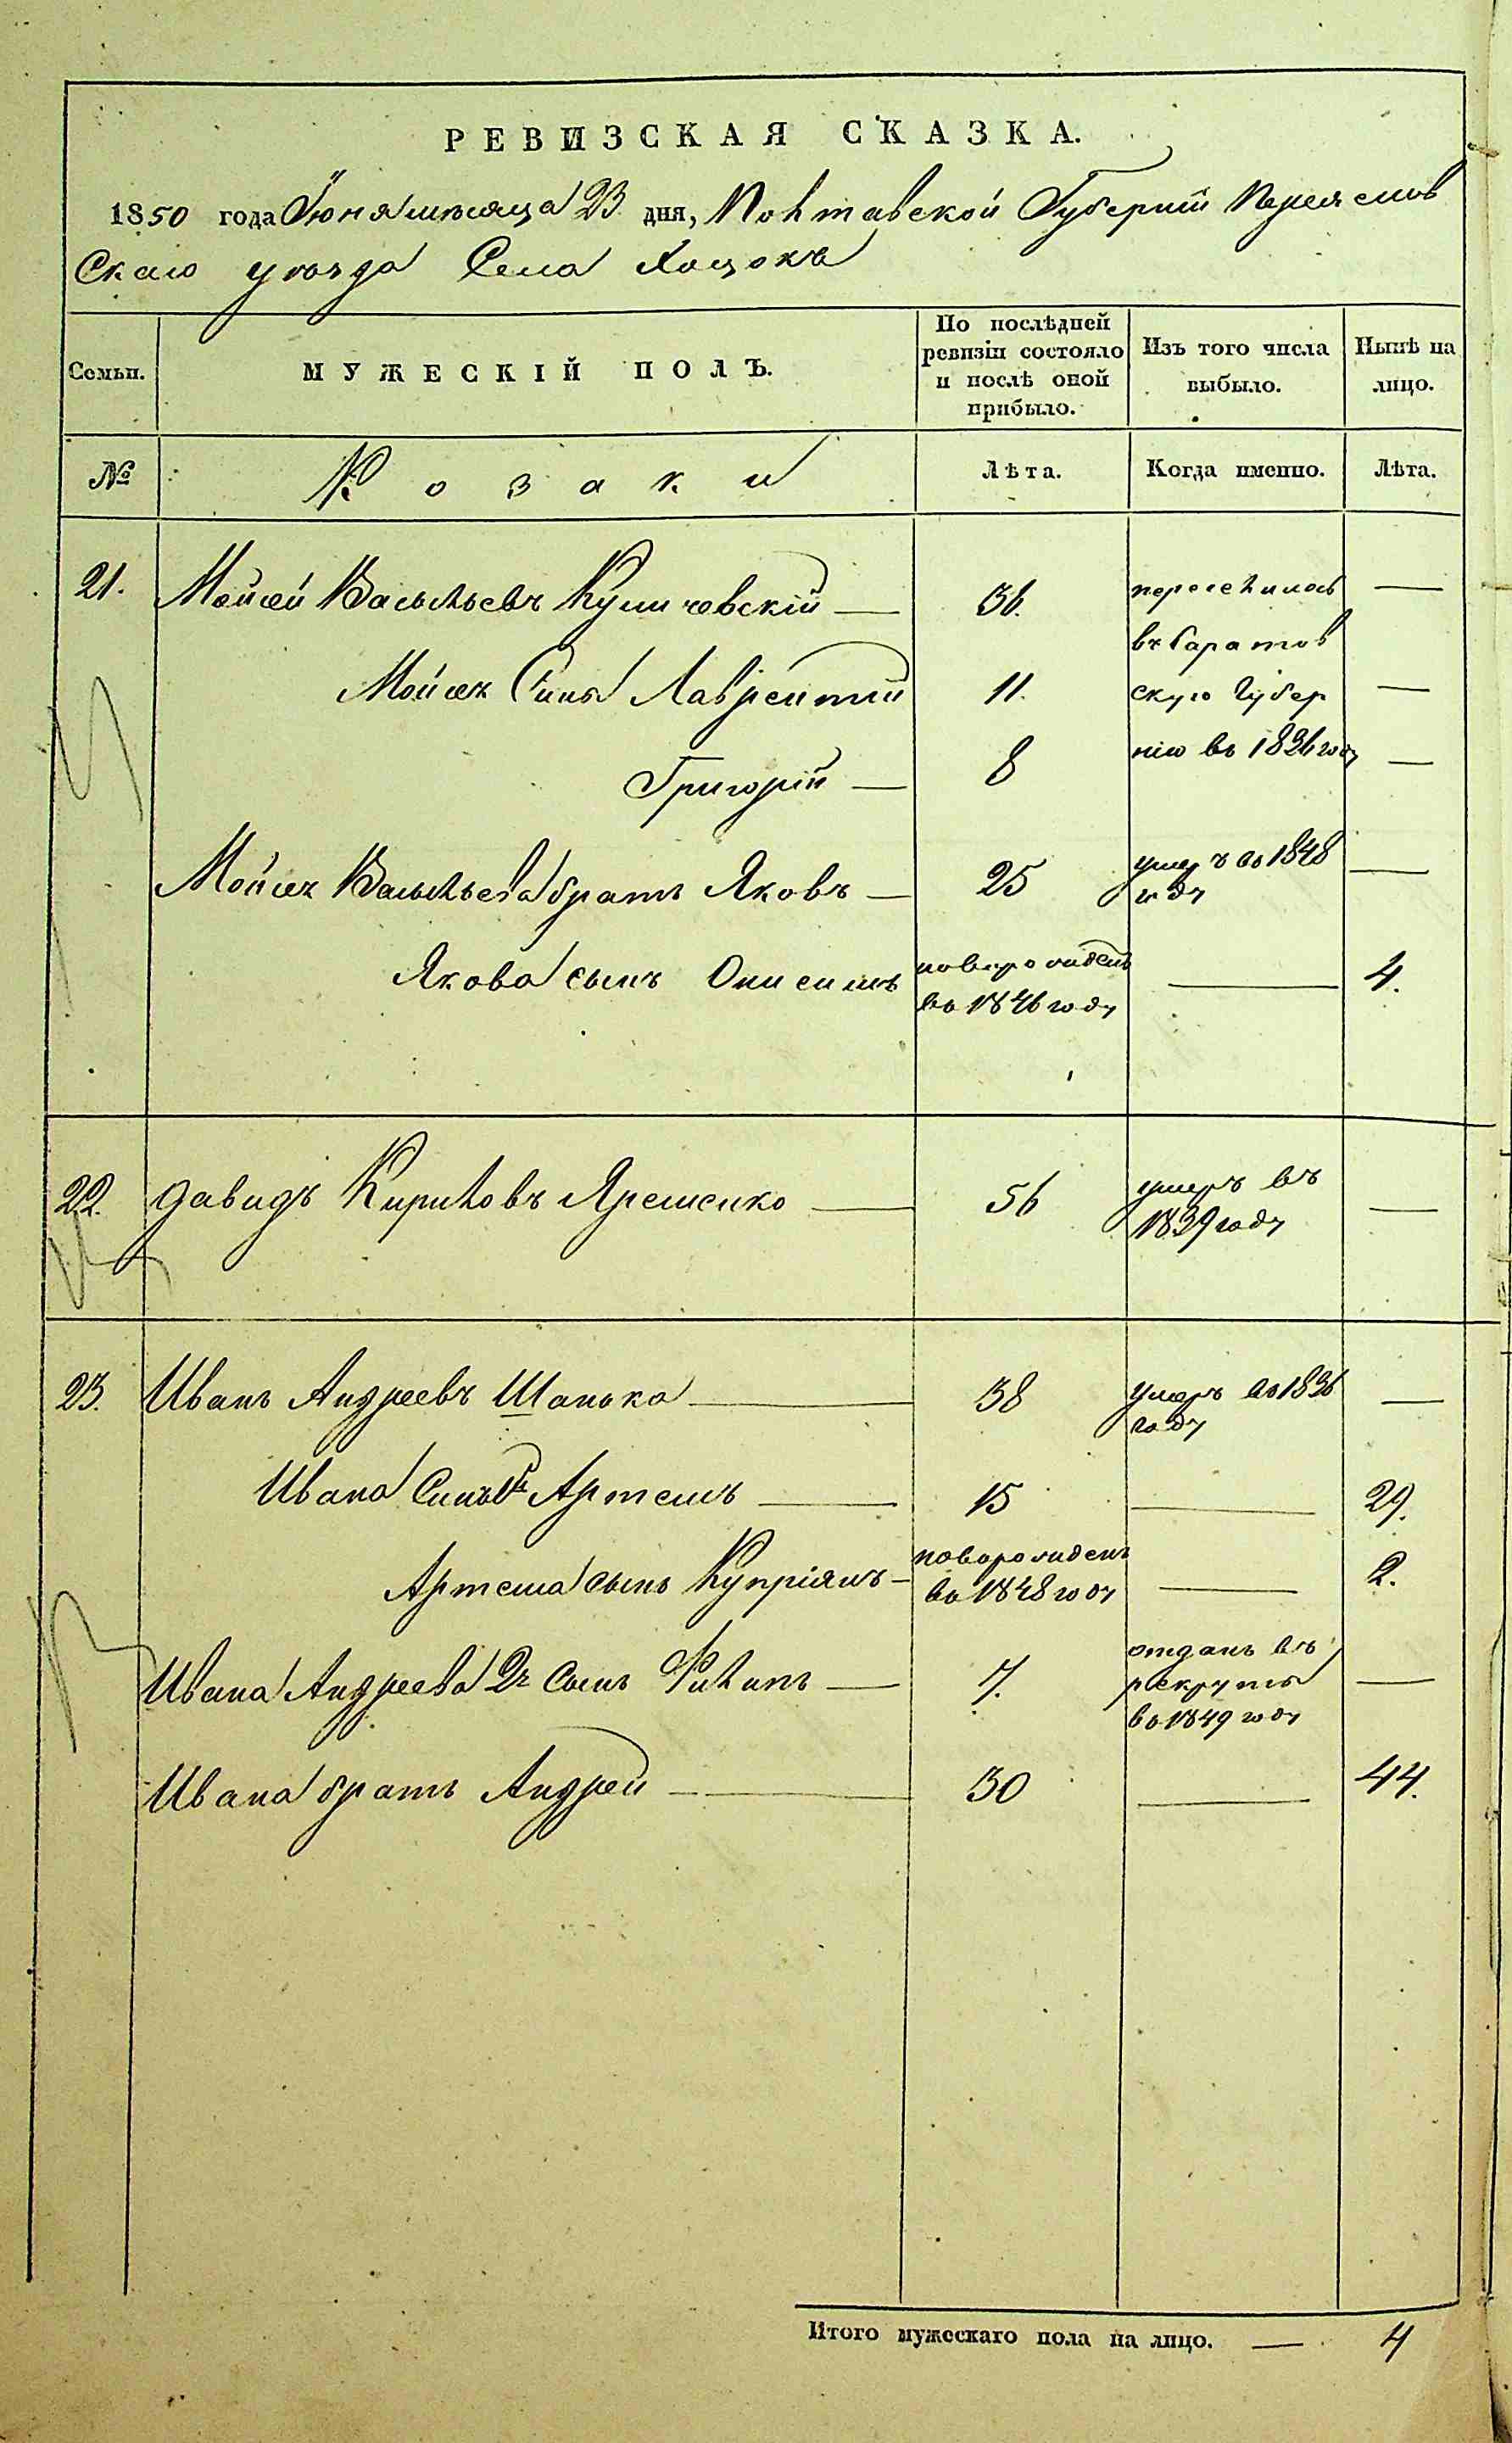 РЕВИЗСКАЯ СКАЗКА.
1850 года Іюня мѣсяца 23 дня, Полтавской Губерніи Переяслов
Скаго уѣзда Села Хоцокъ
Семьи.
МУЖЕСКІЙ ПОЛЪ.
По послѣдней
ревизіи состояло
и послѣ оной
прибыло.
Изъ того числа
выбыло.
Нынѣ на
лицо.
№
Козаки
Лѣта.
Когда именно.
Лѣта.
21. Мойсей Васильевъ — 36. переселился —
въ Саратов
Мойсея Сыны Лаврентій 11. скую Губер —
Григорій — 8 нію въ 1836 году —
Мойсея Васильева братъ Яковъ — 25 умеръ въ 1848 —
году
Якова сынъ Онисимъ новорожденъ — 4.
въ 1846 году
22. Давидъ Кириловъ Яременко — 56 умеръ въ —
1839 году
23. Иванъ Андреевъ Шанька — 38 умеръ въ 1836 —
году
Ивана Сынъ Артемъ — 15 — 29.
Артема сынъ Купріянъ - новорожденъ — 2.
въ 1848 году
Ивана Андреева 2й Сынъ Филипъ — 7. отданъ въ —
рекруты
въ 1849 году
Ивана братъ Андрей — 30 — 44.
Итого мужескаго пола на лицо. — 4